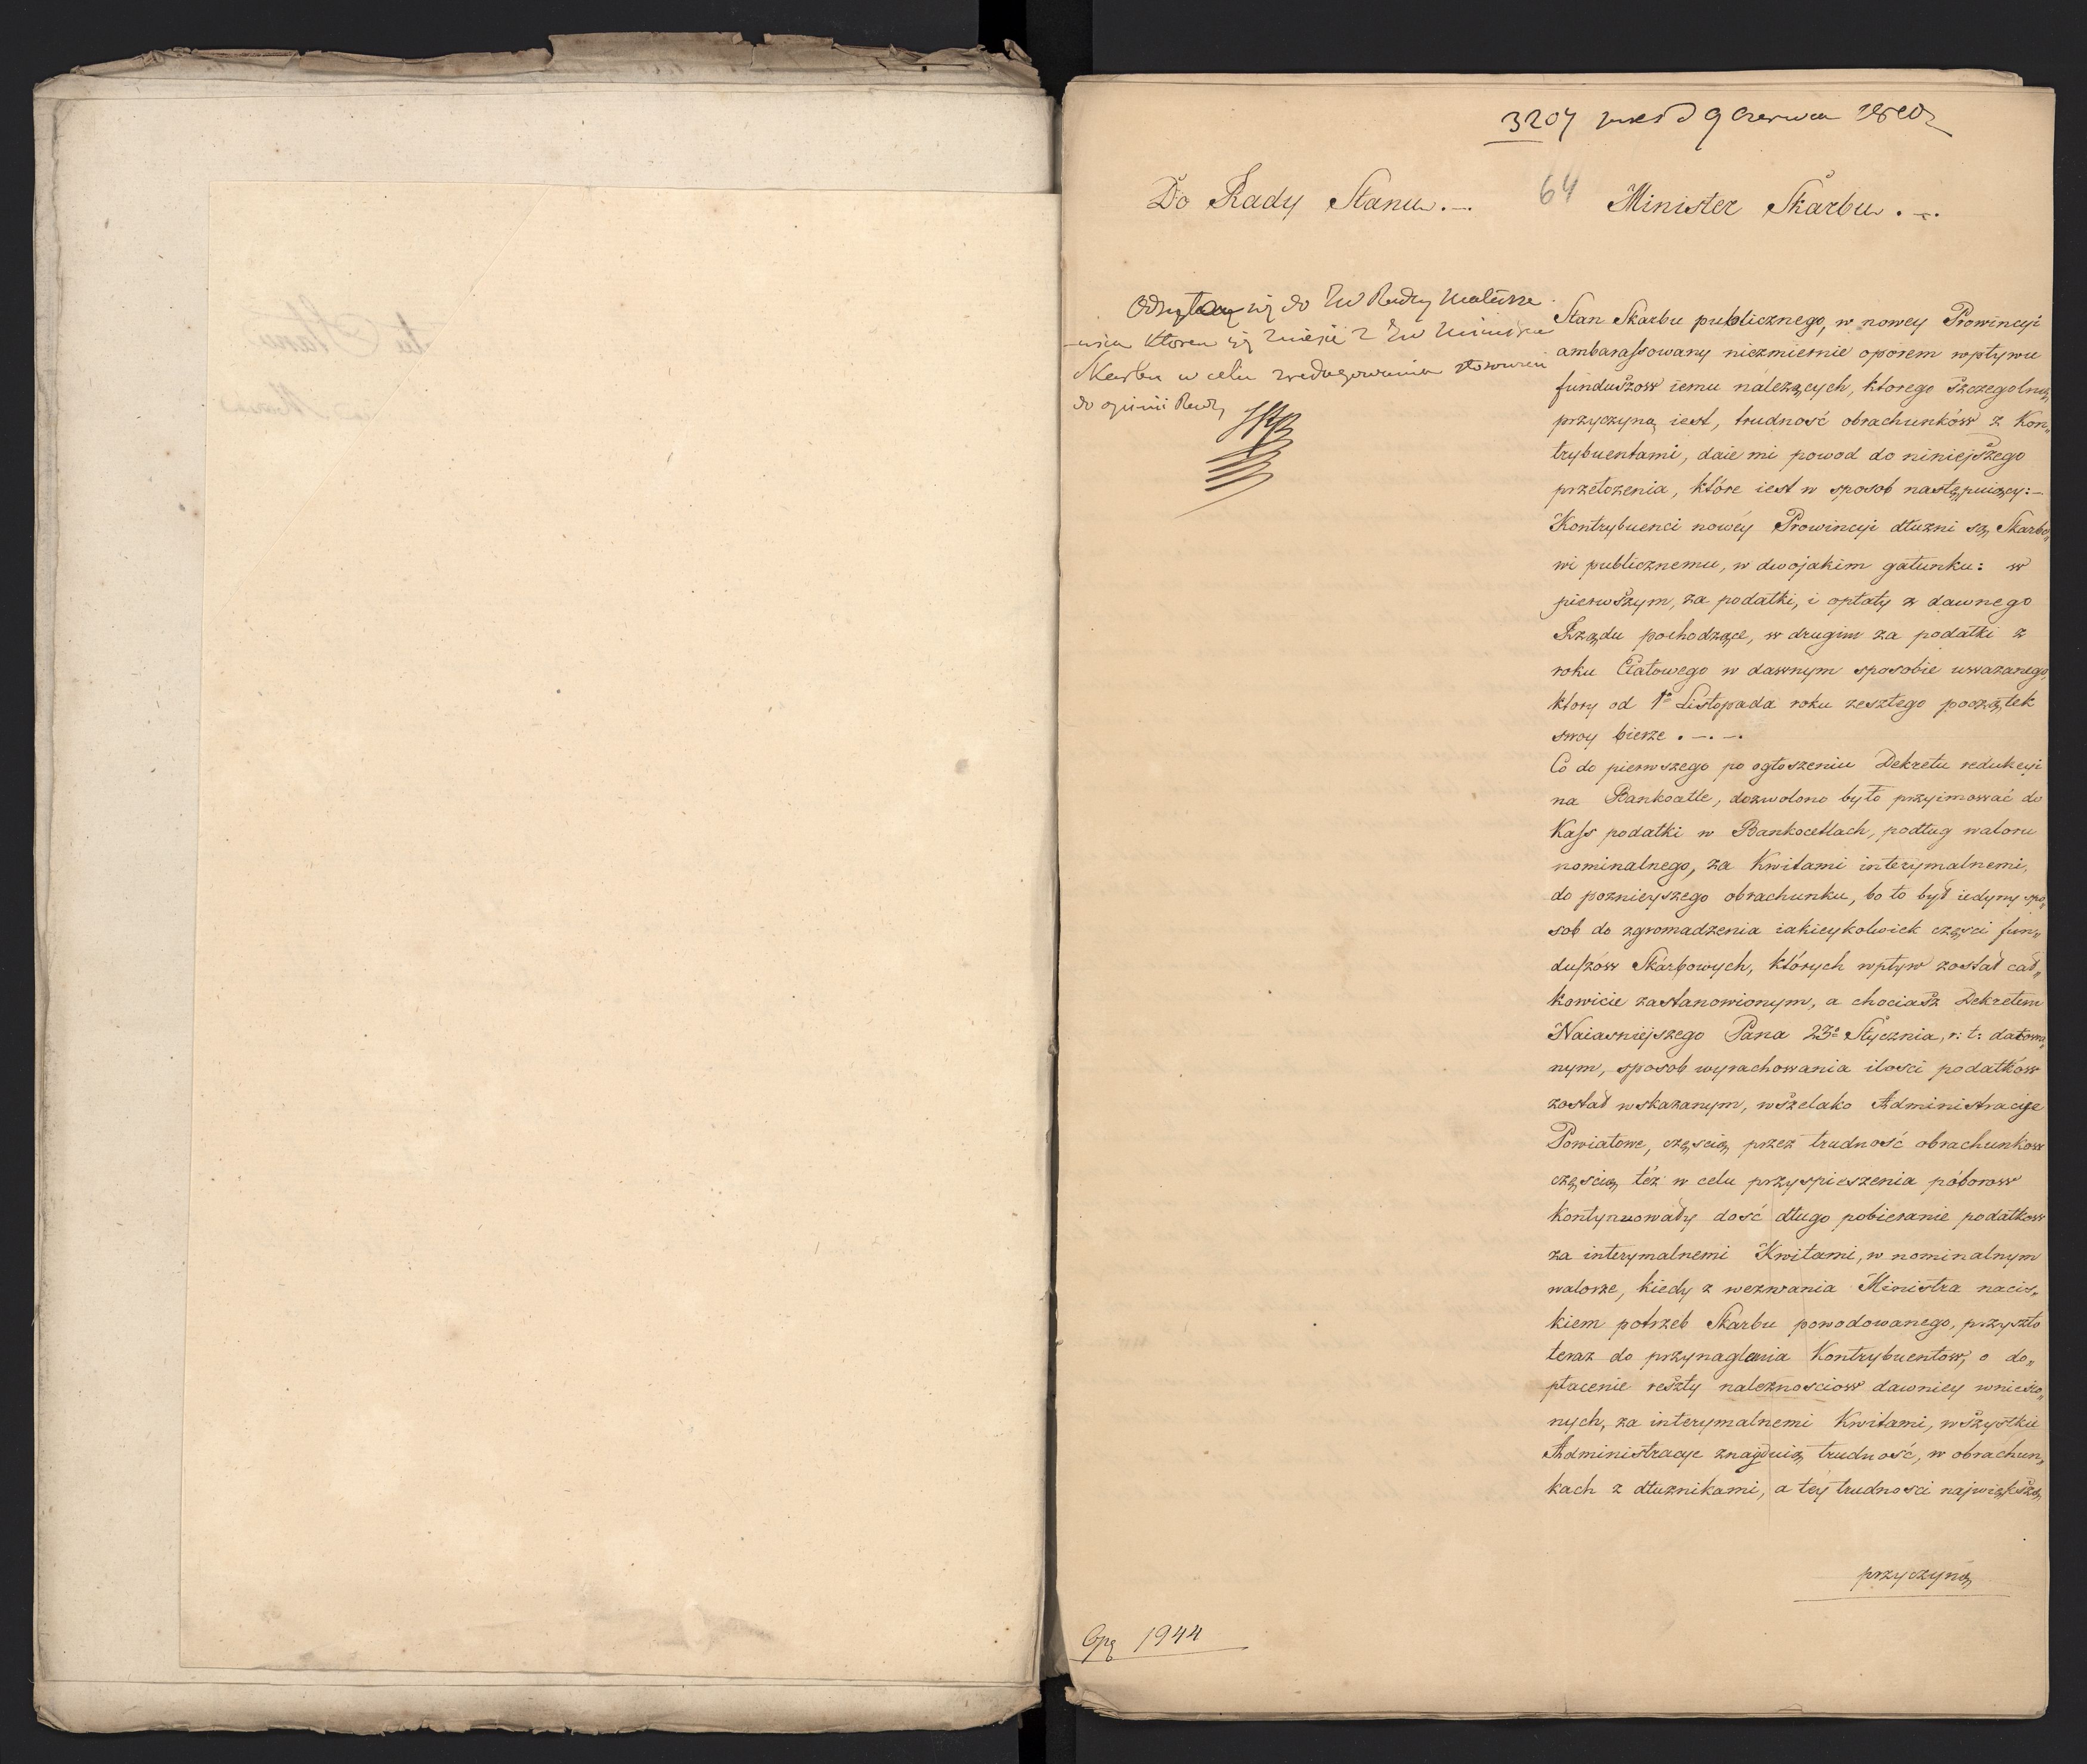 3207 9 Czerwca 1810
64
Do Rady Stanu.—
Minister Skarbu.—.
do JW Radzcy
ktoren się zniesie z JW Ministrem
Skarbu w celu zredagowania stosownei
do opinii Rady
Stan Skarbu publicznego, w nowey Prowincyi
ambarassowany niezmiernie oporem wpływu
funduszow iemu należących, ktorego szczegolną
przyczyną iest, trudność obrachunków z Kon„
trybuentami, daie mi powod do niniejszego
przełożenia, które iest w sposob następuiący:—
Kontrybuenci nowéy Prowincyi dłużni są Skarbo„
wi publicznemu, w dwojakim gatunku: w
pierwszym, za podatki, i opłaty z dawnego
Rządu pochodzące, w drugim za podatki z
roku Etatowego w dawnym sposobie uważanego,
ktory od 1º Listopada roku zeszłego początek
swoy bierze.—.—.
Co do pierwszego po ogłoszeniu Dekretu redukcyi
na Bankoatle, dozwolono było przyimować do
Kass podatki w Bankocetlach, podług waloru
nominalnego, za Kwitami interymalnemi,
do poznieyszego obrachunku, bo to był iedyny spo„
sob do zgromadzenia iakieykolwiek częsci fun„
duszów Skarbowych, których wpływ został cał„
kowicie zastanowionym, a chociasz Dekretem
Naiasniejszego Pana 23º Stycznia, r: t: datowa„
nym, sposob wyrachowania ilosci podatków
został wskazanym, wszelako Administracye
Powiatowe, częscią przez trudność obrachunkow
częscią téż w celu przyspieszenia póborow
kontynuowały dość długo pobieranie podatkow
za interymalnemi Kwitami, w nominalnym
walorze, kiedy z wezwania Ministra nacis„
kiem potrzeb Skarbu powodowanego, przyszło
teraz do przynaglania Kontrybuentow, o do„
płacenie reszty należnosciow dawniey wniesio„
nych, za interymalnemi Kwitami, wszystkie
Administracye znajduią trudność, w obrachun„
kach z dłużnikami, a téy trudnosci największą
przyczyną
Exp 1944